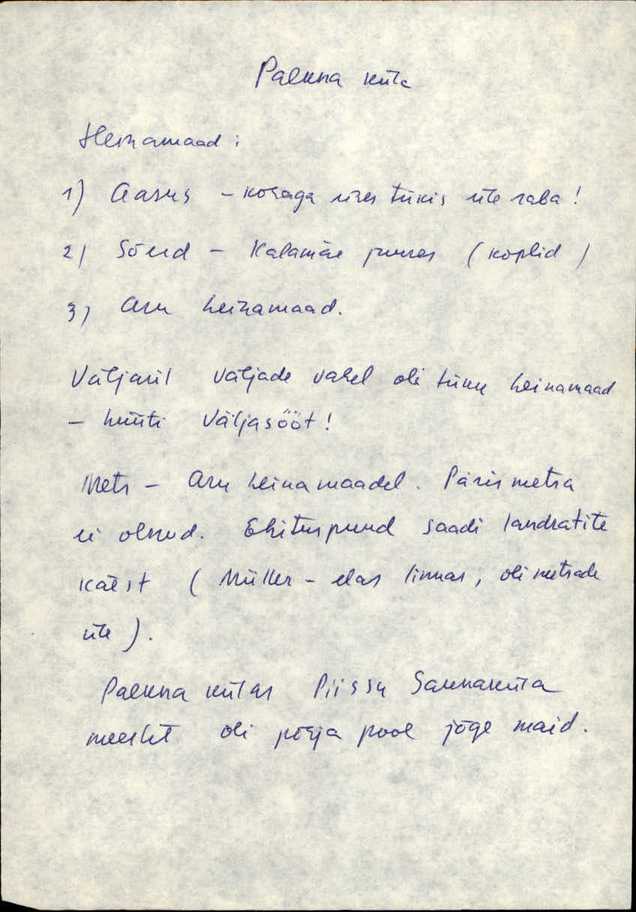 Palkna küla
Heinamaad:
1) Aasus – kosaga ühes tükis üle raba!
2) Sõeld – Kalamäe juures (koplid)
3) Aru heinamaad.
Väljaril väljade vahel oli tükk heinamaad
– hüüti Väljasööt!
Mets – Aru heinamaadel. Päris metsa
ei olnud. Ehituspuud saadi landratite
käest (Müller – elas linnas, oli metsade
üle).
Palkna külas Piissu Saunaküla
meestel oli põhja pool jõge maid.